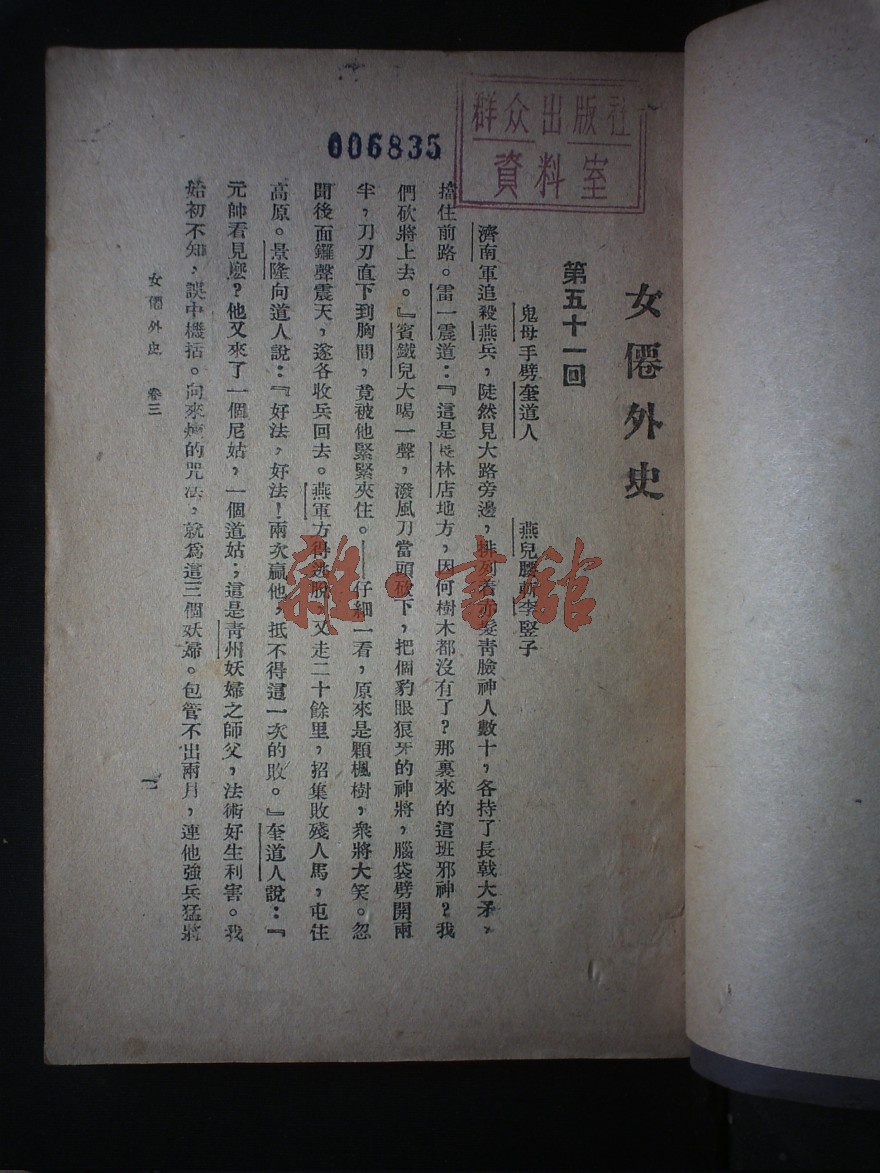 群众出版社
資料室
006835
女僊外史
第五十一回
鬼母手劈奎道人　燕兒腰斬李竪子
濟南軍追殺燕兵，陡然見大路旁邊，排列着赤髮青臉神人數十，各持了長戟大矛，
擋住前路。雷一震道：『這是林店地方，因何樹木都沒有了？那裏來的這班邪神？我
們砍將上去。』賓鐵兒大喝一聲，潑風刀當頭砍下，把個豹眼狼牙的神將，腦袋劈開兩
半，刀刃直下到胸間，竟被他緊緊夾住。仔細一看，原來是顆楓樹，衆將大笑。忽
聞後面鑼聲震天，遂各收兵回去。燕軍方得逃脫，又走二十餘里，招集敗殘人馬，屯住
高原。景隆向道人說：『好法，好法！兩次贏他，抵不得這一次的敗。』奎道人說：『
元帥看見麽？他又來了一個尼姑，一個道姑；這是青州妖婦之師父，法術好生利害。我
始初不知，誤中機括。向來煉的咒法，就爲這三個妖婦。包管不出兩月，連他強兵猛將
女僊外史　卷三
一
雜·書館